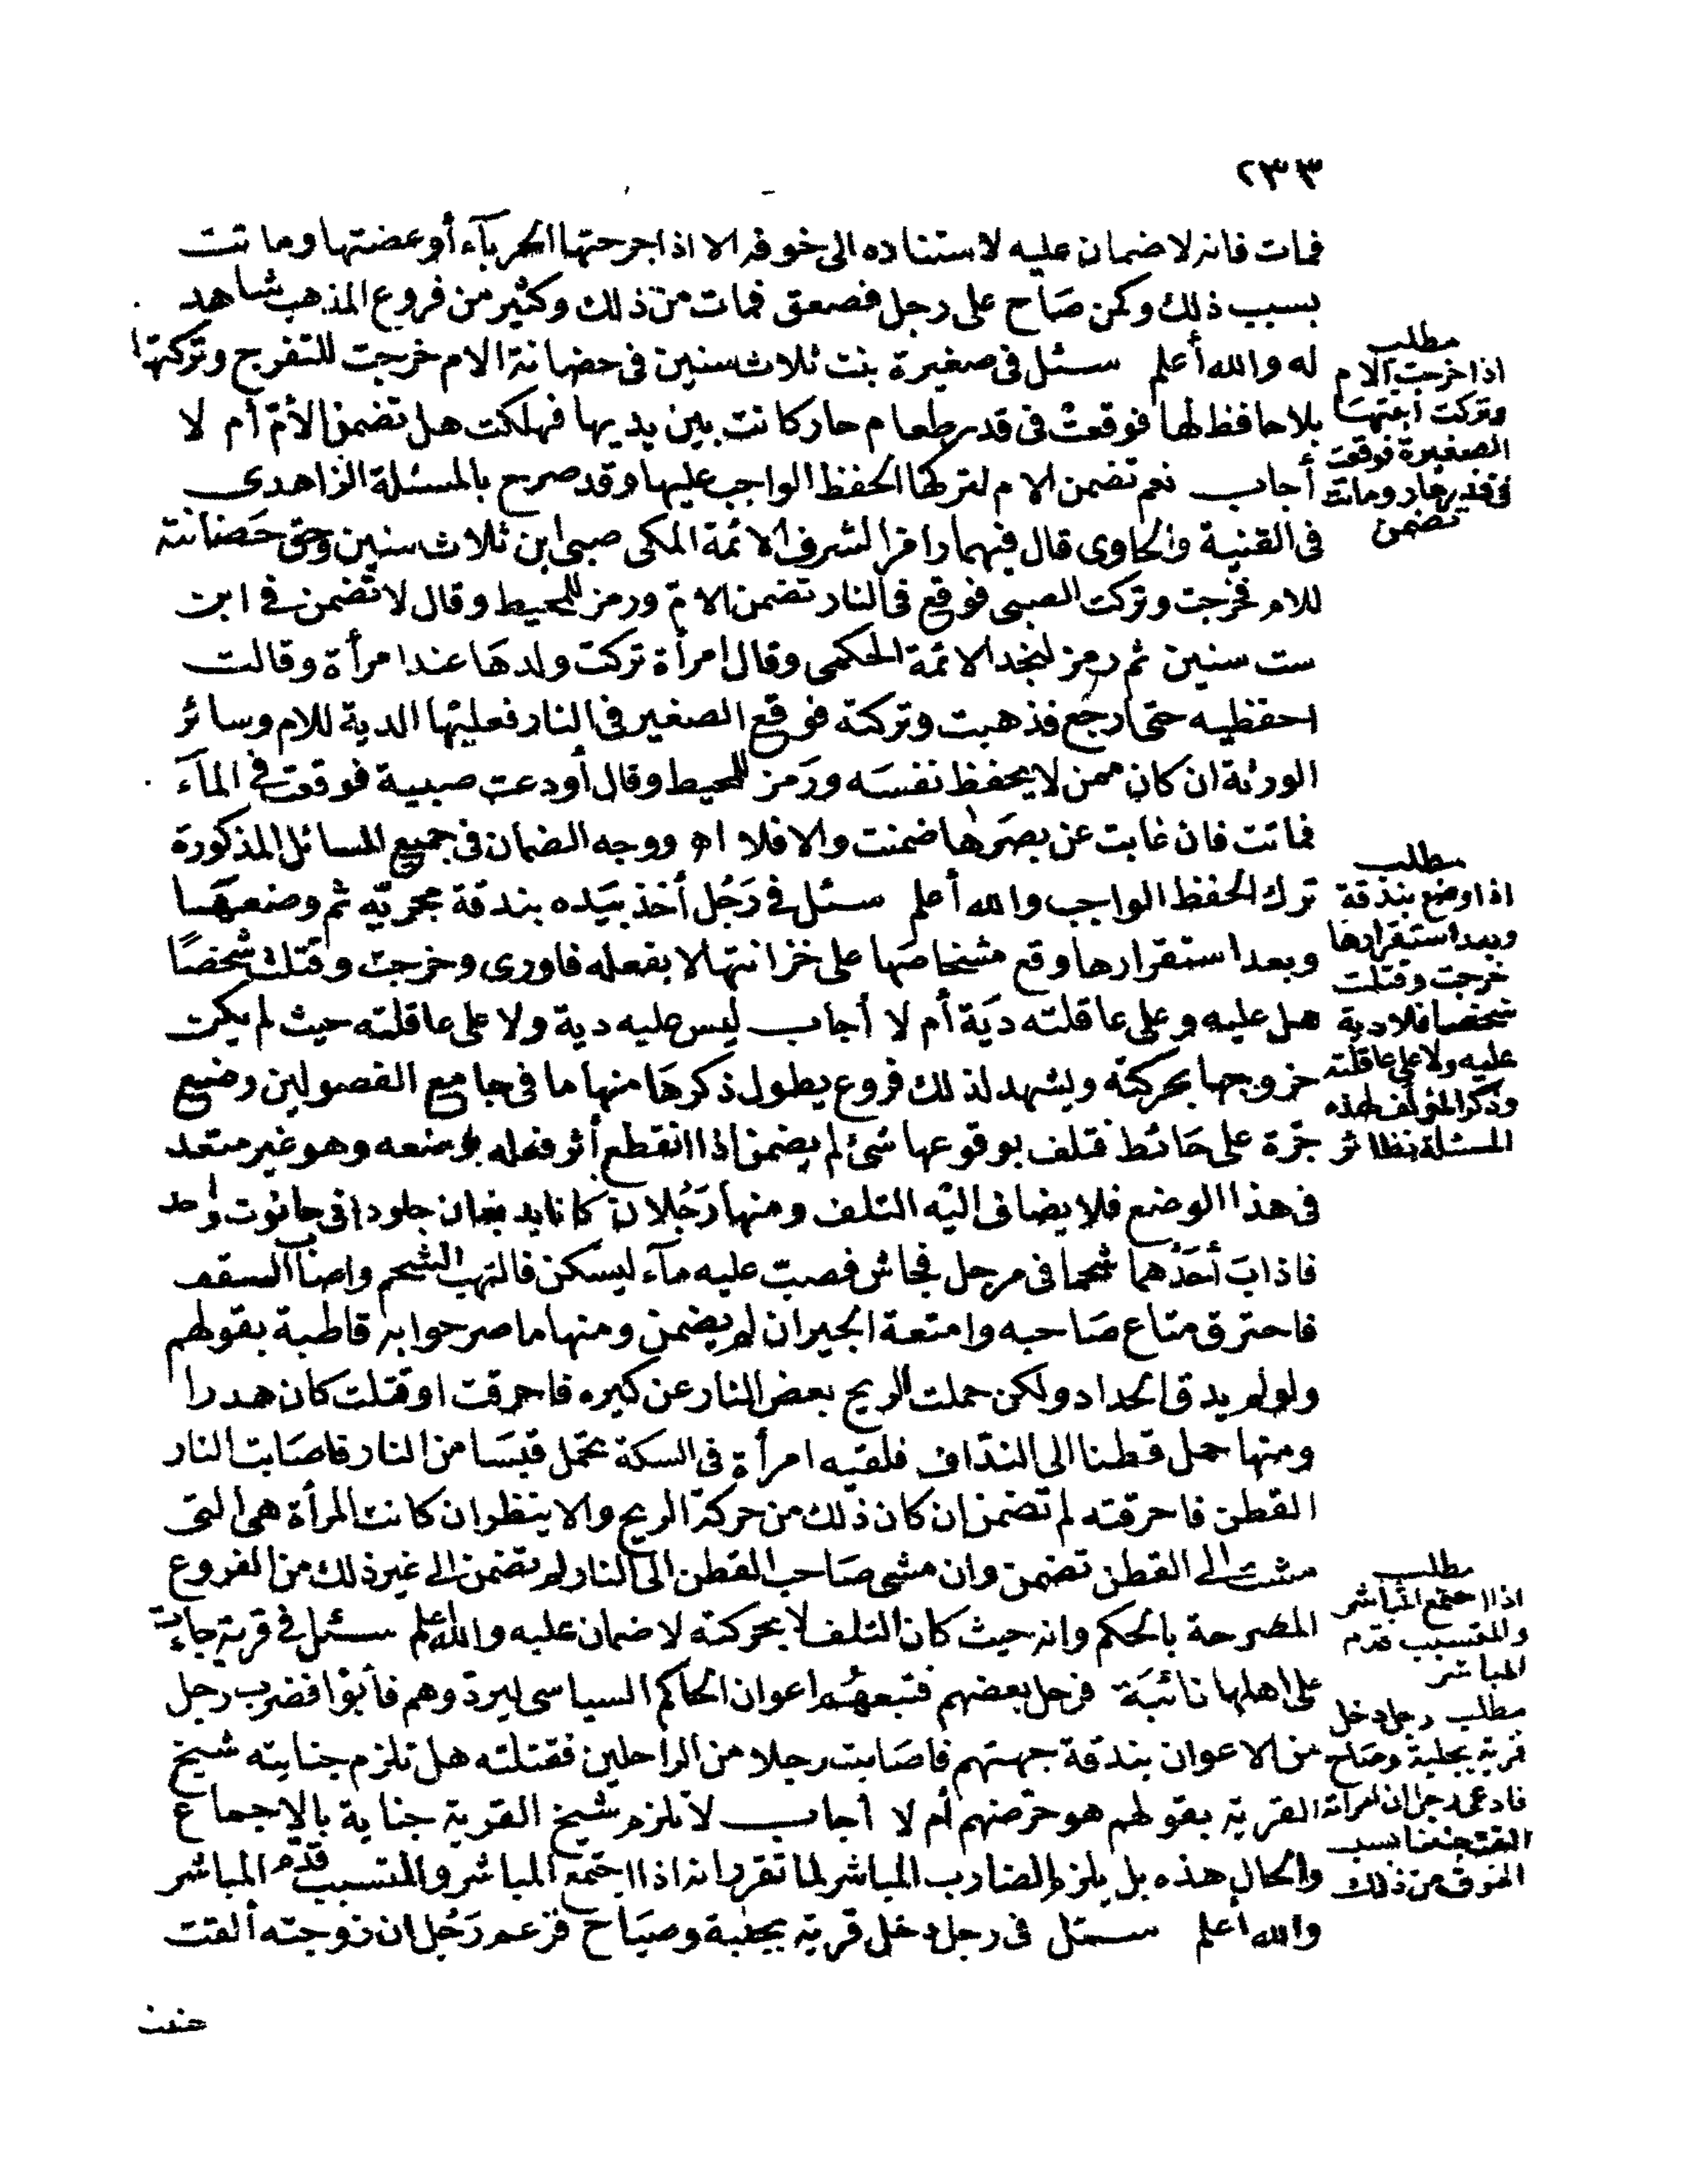 ٢٣٣
فمات فانه لا ضمان عليه لاستناده الى خوفه الا اذا جرحتها الحرباء أو عضتها وماتت
بسبب ذلك وكمن صاح على رجل فصعق فمات من ذلك وكثير من فروع المذهب شاهد
له والله أعلم سئل فى صغيرة بنت ثلاث سنين فى حضانة الام خرجت للتفرج وتركتها
بلا حافظ لها فوقعت فى قدر طعام حار كانت بين يديها فهلكت هل تضمن الأمّ أم لا
أجاب نعم تضمن الام لتركها الحفظ الواجب عليها وقد صرح بالمسئلة الزاهدى
فى القنية والحاوى قال فيهما رامزا لشرف الائمة المكى صبى ابن ثلاث سنين وحق حضانته
للام فخرجت وتركت الصبى فوقع فى النار تضمن الامّ ورمز للمحيط وقال لا تضمن فى ابن
ست سنين ثم رمز لنجد الائمة الحكمى وقال امرأة تركت ولدها عند امرأة وقالت
احفظيه حتى ارجع فذهبت وتركته فوقع الصغير فى النار فعليها الدية للام وسائر
الورثة ان كان ممن لا يحفظ نفسه ورمز للمحيط وقال أودعت صبية فوقعت فى المآء
فماتت فان غابت عن بصرها ضمنت والا فلا اه ووجه الضمان فى جميع المسائل المذكورة
ترك الحفظ الواجب والله أعلم سئل فى رَجُل أخذ بيَده بندقة مجريّه ثم وضعها
وبعد استقرارها وقع مشخاصها على خزانتها لا بفعله فاورى وخرجت وقتلت شخصًا
هل عليه وعلى عاقلته دية أم لا أجاب ليس عليه دية ولا على عاقلته حيث لم يكن
خروجها بحركته ويشهد لذلك فروع يطول ذكرها منها ما فى جامع الفصولين وضع
جرّة على حائط فتلف بوقوعها شئ لم يضمن اذا انقطع أثر فعله بوضعه وهو غير متعد
فى هذا الوضع فلا يضاف اليه التلف ومنها رَجُلان كانا يدبغان جلودا فى حانوت واحد
فاذابَ أحَدُهما شحما فى مرجل فجاش فصبّ عليه مآء ليسكن فالتهب الشحم واصاب السقف
فاحترق متاع صاحبه وامتعة الجيران لم يضمن ومنها ما صرحوا به قاطبة بقولهم
ولو لم يدق الحداد ولكن حملت الريح بعض النار عن كيره فاحرقت او قتلت كان هدرا
ومنها حمل قطنا الى الندّاف فلقيه امرأة فى السكة تحمل قبسا من النار فاصابت النار
القطن فاحرقته لم تضمن إن كان ذلك من حركة الريح والا ينظر ان كانت المرأة هى التى
مشت الى القطن تضمن وان مشى صاحب القطن الى النار لم تضمن الى غير ذلك من الفروع
المصرحة بالحكم وانه حيث كان التلف لا بحركته لا ضمان عليه والله أعلم سئل فى قرية جاءت
على اهلها نائبة فرحل بعضهم فتبعهُم اعوان الحاكم السياسى ليردّوهم فأبوْا فضرب رجل
من الاعوان بندقة جهتهم فاصابت رجلا من الراحلين فقتلته هل تلزم جنايته شيخ
القرية بقولهم هو حرّضهم أم لا أجاب لا تلزم شيخ القرية جناية بالإجماع
والحال هذه بل يلزم الضارب المباشر لما تقرر انه اذا اجتمع المباشر والمتسبب قدّم المباشر
والله أعلم سئل فى رجل دخل قرية بجلبة وصياح فزعم رَجُل ان زوجته ألقت
جنينا
مطلب
اذا خرجت الام
وتركت ابنتها
الصغيرة فوقعت
فى قدر حار وماتت
تضمن
مطلب
اذا وضع بندقة
وبعد استقرارها
خرجت وقتلت
شخصا فلا دية
عليه ولا على عاقلته
وذكر المؤلف لهذه
المسئلة نظائر
مطلب
اذا اجتمع المباشر
والمتسبب قدم
المباشر
مطلب رجل دخل
قرية بجلبة وصاح
فادعى رجل ان امرأته
القت جنينا بسبب
الخوف من ذلك